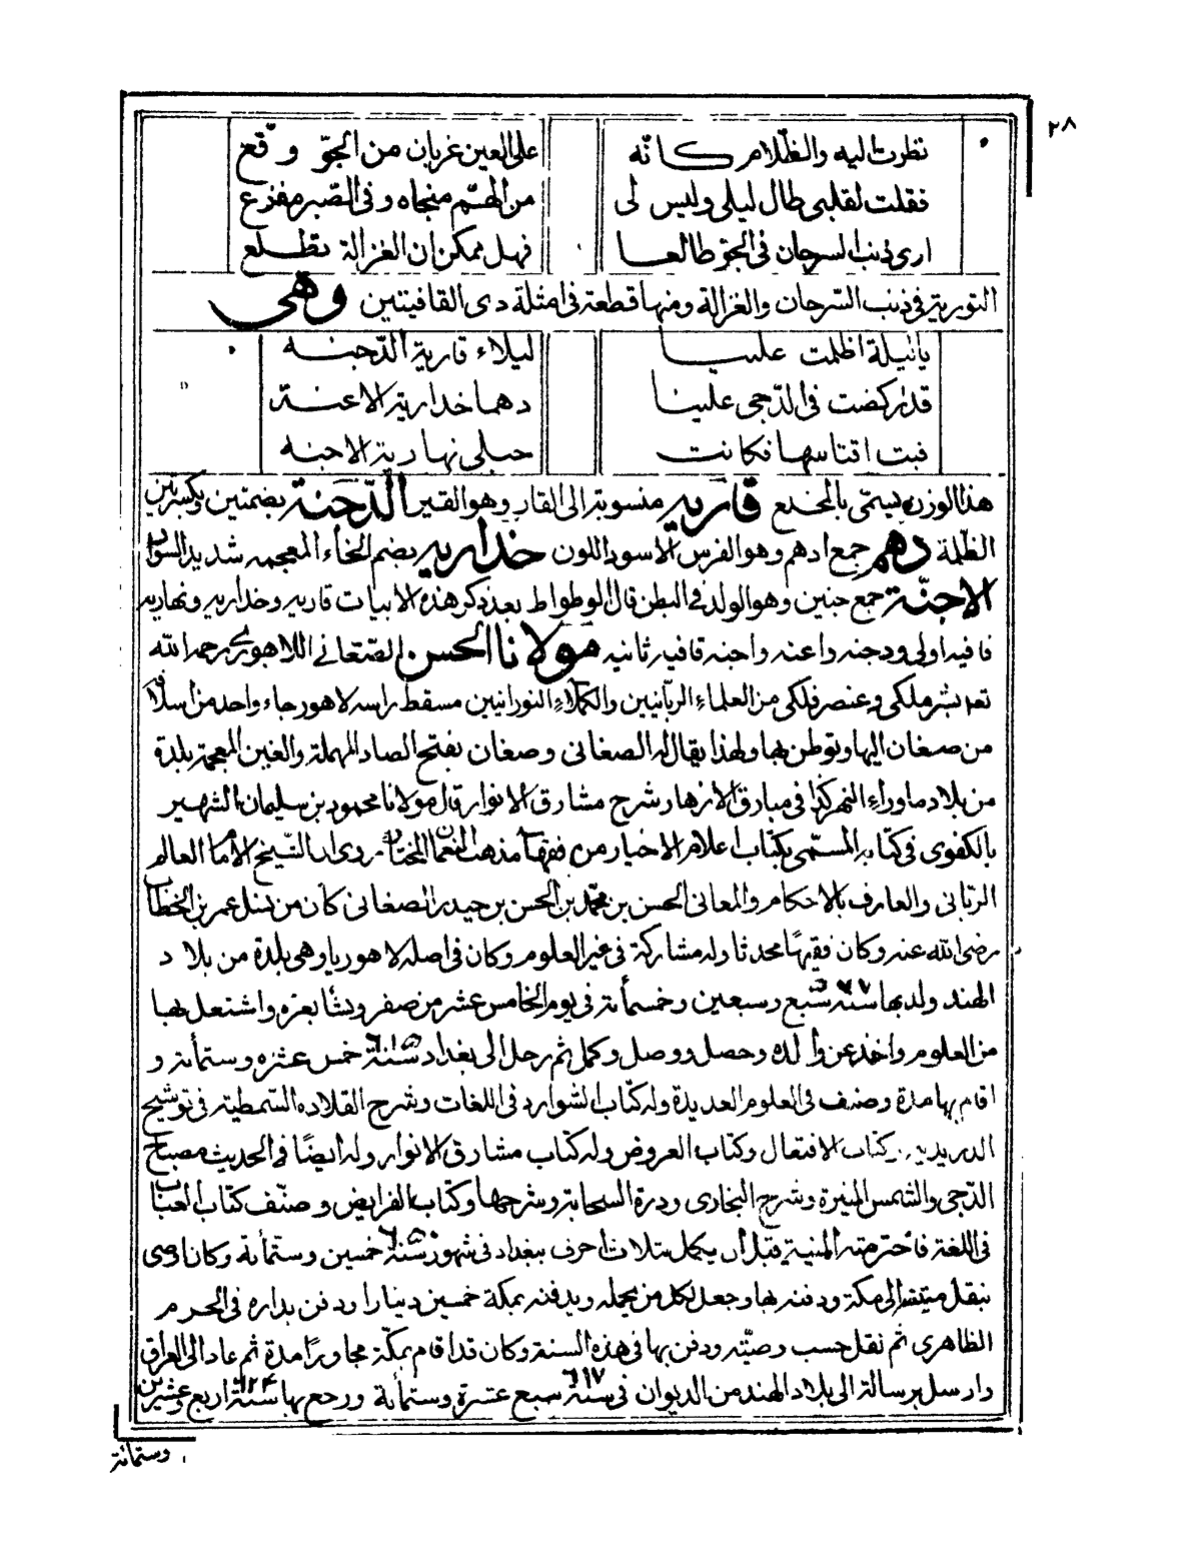 ٢٨
نظرت اليه والظلام كانّه على العين غربان من الجوّ وقّع
فقلت لقلبى طال ليلى وليس لى من الهمّ منجاه وفى الصّبر مفزع
ارى ذنب السرحان فى الجوّ طالعا فهل ممكن ان الغزالة تطلع
التورية فى ذنب السّرحان والغزالة ومنها قطعة فى امثلة ذى القافيتين وهى
يا ليلة اظلمت علينا ليلاء قارية الدّجنه
قد ركضت فى الدّجى علينا دهما خدارية الاعنة
فبت اقتاسها فكانت حبلى نهارية الاجنه
هذا الوزن يسمّى بالمخلع قاريه منسوبة الى القار وهو القير الدّجنة بضمتين وبكسرتين
الظلمة دهم جمع ادهم وهو الفرس الاسود اللون خداريه بضم الخاء المعجمه شديد السواد
الاجنّة جمع جنين وهو الولد فى البطن قال الوطواط بعد ذكر هذه الابيات قاريه وخداريه ونهاريه
قافيه اولى ودجنه واعنه واجنه قافيه ثانيه مولانا الحسن الصّغانى اللاهورى رحمه الله
تعم بشر ملكى وعنصر فلكى من العلماء الربّانيين والكملاء النورانيين مسقط راسه لاهور جاء واحد من اسلافه
من صغان اليها وتوطن بها ولهذا يقال له الصغانى وصغان بفتح الصاد المهملة والغين المعجمة بلدة
من بلاد ماوراء النهر كذا فى مبارق الازهار شرح مشارق الانوار قال مولانا محمود بن سليمان الشهير
بالكفوى فى كتابه المسمّى بكتاب اعلام الاخيار من فقهاء مذهب النعمان المختار روى ان الشيخ الامام العالم
الربّانى والعارف بالاحكام والمعانى الحسن بن محمّد بن الحسن بن حيدر الصغانى كان من نسل عمر بن الخطاب
رضى الله عنه وكان فقيهًا محدثا وله مشاركة فى غير العلوم وكان فى اصله لاهوريا وهى بلدة من بلاد
الهند ولد بها سنة ٥٧٧ سبع وسبعين وخمسمأة فى يوم الخامس عشر من صفر ونشأ بغزه واشتغل بها
من العلوم واخذ عن والده وحصل ووصل وكمل ثم رحل الى بغداد سنة ٦١٥ خمس عشره وستمأة و
اقام بها مدة وصنف فى العلوم العديدة وله كتاب الشوارد فى اللغات وشرح القلاده السّمطية فى توشيح
الدريدية وكتاب الافتعال وكتاب العروض وله كتاب مشارق الانوار وله ايضًا فى الحديث مصباح
الدّجى والشمس المنيرة وشرح البخارى ودرة السحابة وشرحها وكتاب الفرايض وصنّف كتاب العباب
فى اللغة فاخترمته المنية قبل ان يكمل بثلاث احرف ببغداد فى شهور سنة ٦٥٠ خمسين وستمأة وكان اوصى
بنقل ميتته الى مكة ودفنه بها وجعل لكل من يحمله ويدفنه بمكة خمسين دينارا ودفن بداره فى الحرم
الظاهرى ثم نقل حسب وصيّته ودفن بها فى هذه السنة وكان قد اقام بمكّة مجاورًا مدة ثم عاد الى العراق
وارسل برسالة الى بلاد الهند من الديوان فى سنة ٦١٧ سبع عشرة وستمأة ورجع بها سنة ٦٢٤ اربع وعشرين
وستمائة